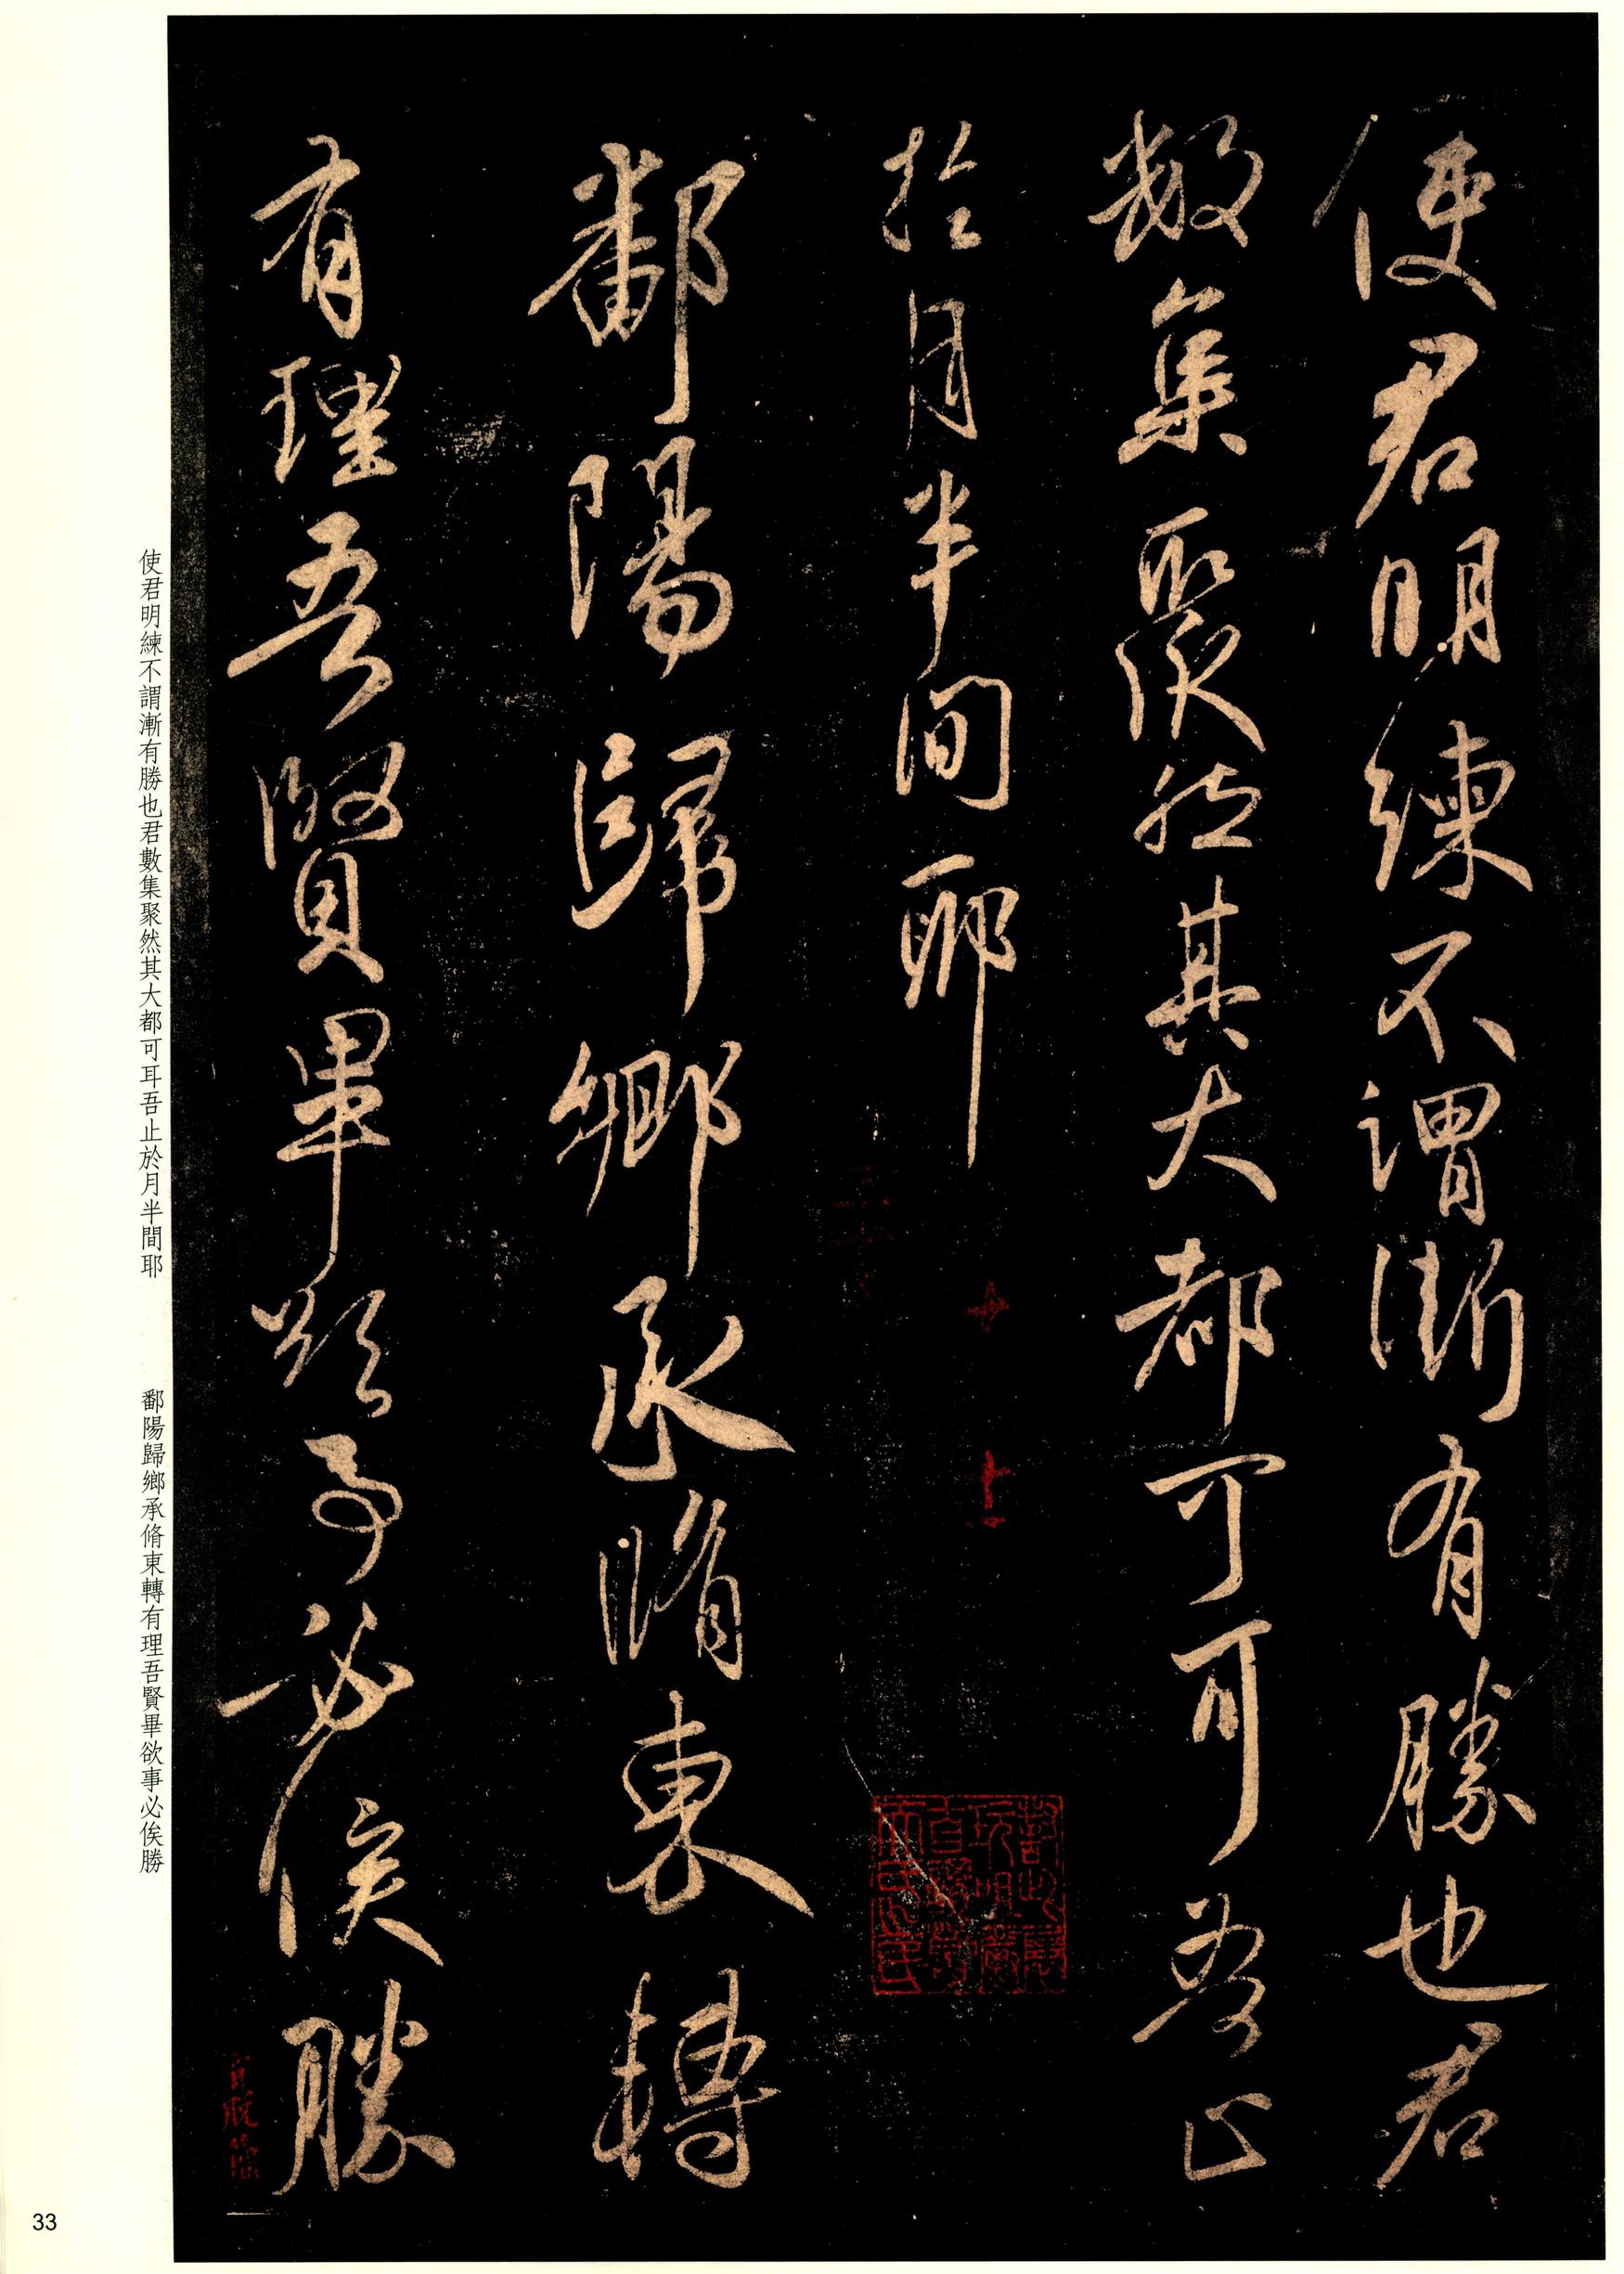 使君明練不謂漸有勝也君
數集聚然其大都可耳吾止
於月半間耶
鄱陽歸鄉承脩東轉
有理吾賢畢欲事必俟勝
使君明練不謂漸有勝也君數集聚然其大都可耳吾止於月半間耶
鄱陽歸鄉承脩東轉有理吾賢畢欲事必俟勝
33